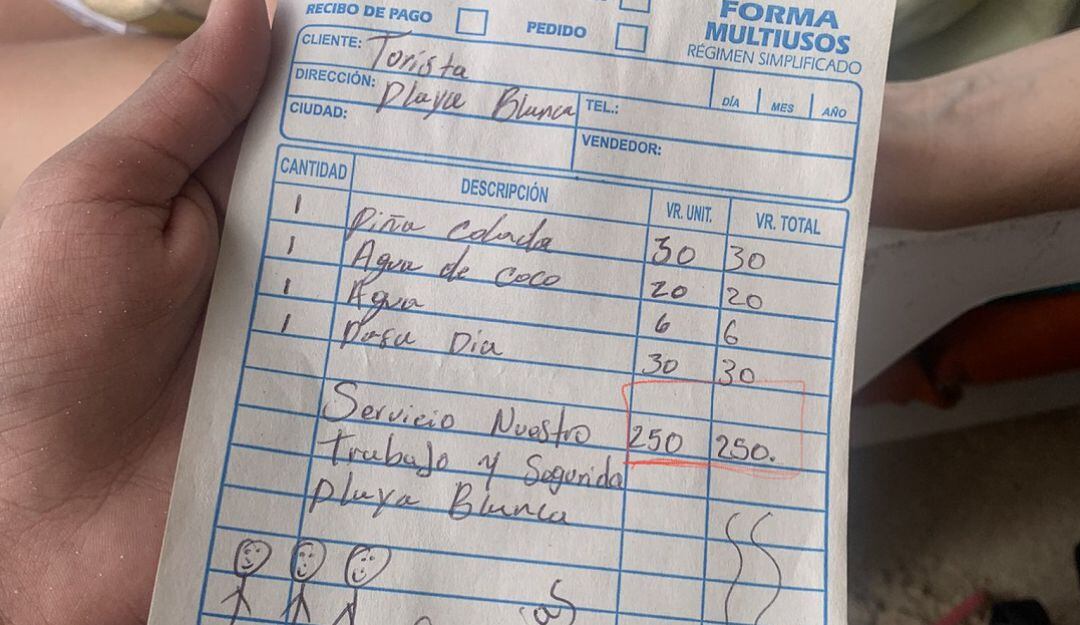 FORMA
MULTIUSOS
RÉGIMEN SIMPLIFICADO
RECIBO DE PAGO
PEDIDO
CLIENTE: Torista
DIRECCIÓN: Playa Blanca TEL.: DÍA MES AÑO
CIUDAD: VENDEDOR:
CANTIDAD DESCRIPCIÓN VR. UNIT. VR. TOTAL
1 Piña Colada 30 30
1 Agua de coco 20 20
1 Agua 6 6
1 Pasa Dia 30 30
Servicio Nuestro 250 250.
Trabajo y Segurida
Playa Blanca